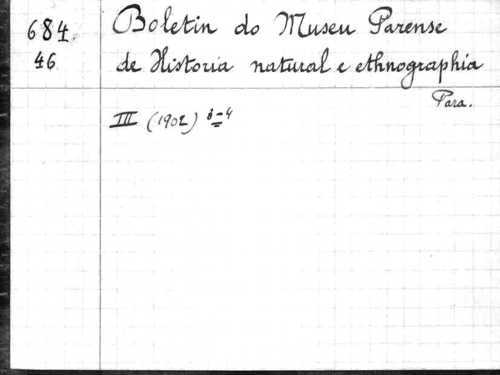 684 Boletin do Museu Parense
46 de Historia natural e ethnographia
Para.
III (1902) 3-4